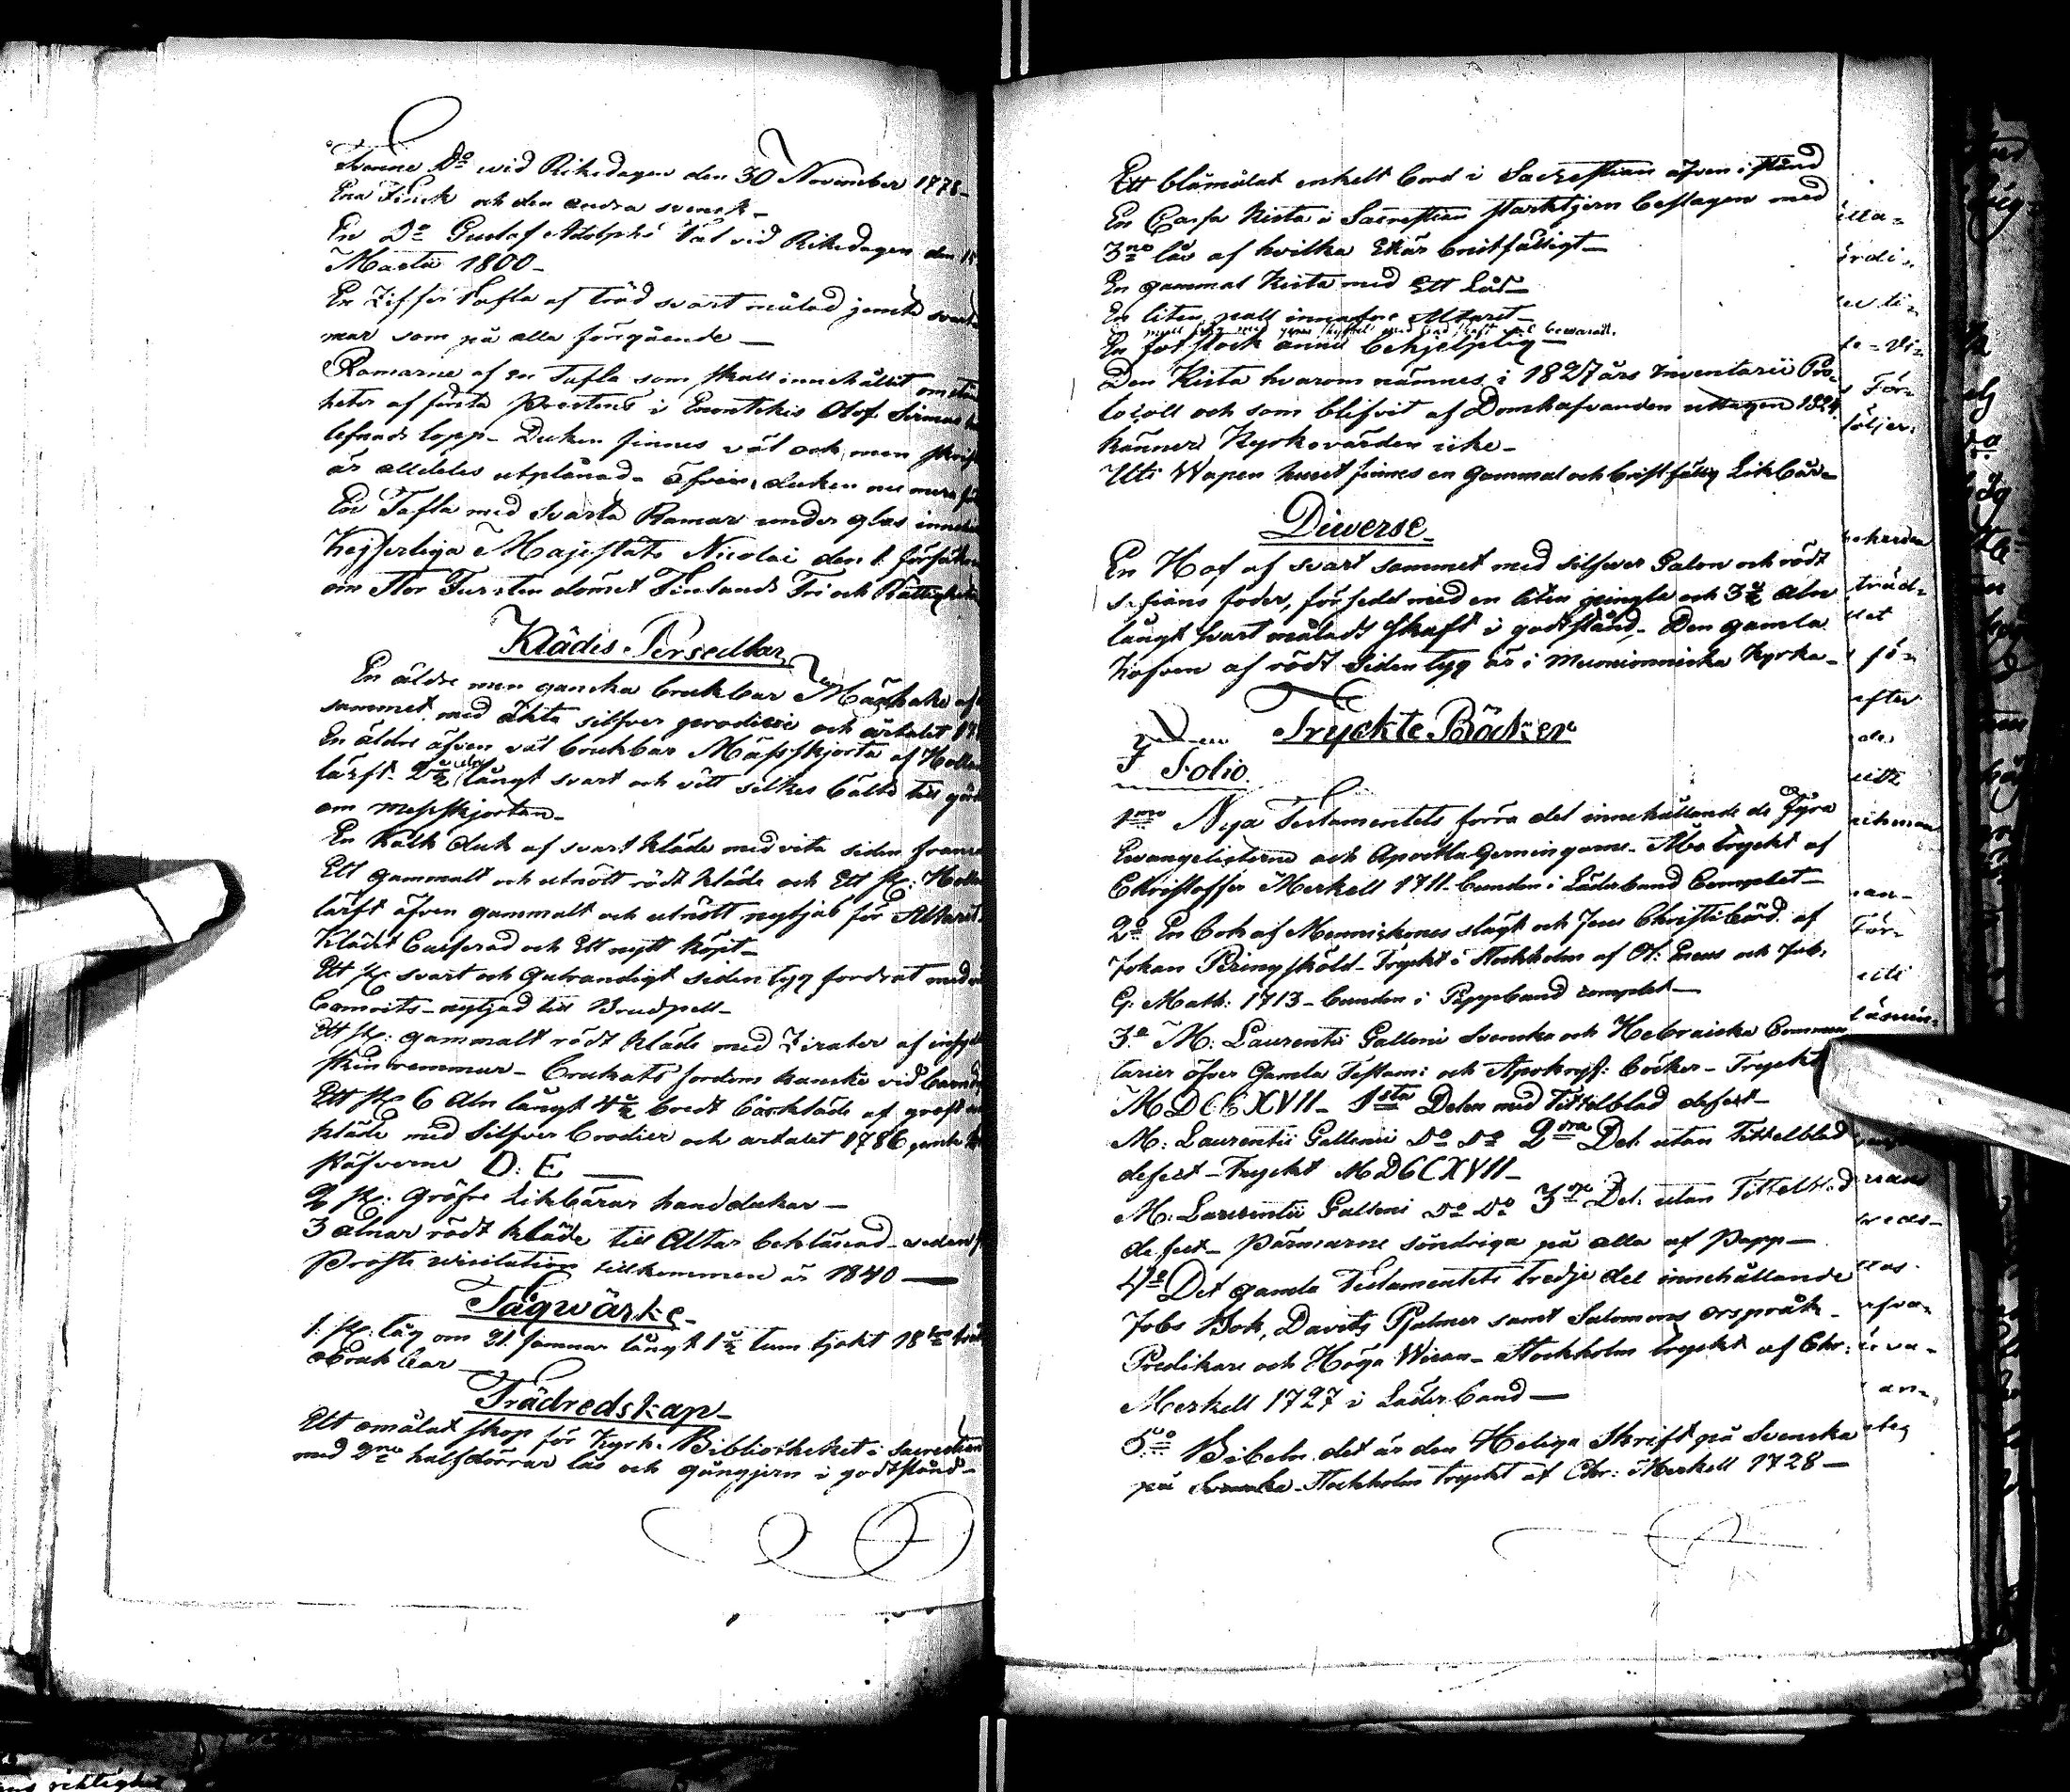 Tvenne Do wid Riksdagen den 30 November 1778-
Ena Finsk och den andra svensk-
En Do Gustaf Adolphs Tal vid Riksdagen den 15
Martii 1800-
En Ziffer Tafla af träd svart målad jemte svarta
mar som på alla föregående-
Ramarne af en Tafla som skall innehållit omstän
heter af första Prestens i Enontekis Olof Sirmas
lefnads lopp- Duken finnes väl och, men skrift
är alldeles utplånad- äfven duken nu mera för
En Tafla med Svarta Ramar under glas inneh
Kejserliga Majestäts Nicolai den 1. försäkran
om Stor Furstendömet Finlands Fri och Rättigheter
Klädes-Persedlar
En äldre men ganska brukbar Mässhake af
sammet med äkta silfver brodieri och årtalet 17
En äldre äfven väl brukbar Mässskjorta af Hollan
lärft- 2½ aln långt svart och vitt silkes bälte till gör
om Messskjortan-
En Kalk duk af svart kläde med vita siden frans
Ett gammalt och utnött rödt kläde och Ett st: Hollan
lärft äfven gammalt och utnött nytjas för Altaret-
Klädet Casserad och Ett nytt köpt-
Ett st: svart och gulrandigt siden tyg fordrat med
Camrits- nytjad till Brudpell-
Ett st: gammalt rödt kläde med Zirater af insyd
skin remmar- Brukats fordom kanske vid barnd
Ett st: 6 Aln långt 4½ bredt bårkläde af groft
kläde med Silfver brodier och artalet 1786 jemte
stäfverne D: E-
2 st: Gröfre Likbårar handdukar-
3 alnar rödt kläde till Altar beklänad- sedan
Prosts visitation tillkommen år 1840-
Tågwärke-
1: st: tåg om 21. famnar långt 1½ tum tjokt 18
obrukbar
Trädredskap-
Ett omålat skåp för Kyrk. Bibliotheket i Sacrestian
med 2ne halfdörrar lås och gångjern i godt stånd-
Ett blåmålat enkelt bord i Sacrestian äfven i stånd
En Cassa Kista i Sacrestian starkt jern beslagen med
3ne lås af hvilka Ett är bristfälligt-
En gammal Kista med Ett Lås-
En liten pall innanföre Altaret-
En fot stock ännu behjelplig-
Den Kista hvarom nämnes i 1827 års Inventarii Pro-
tocoll och som blifvit af Domhafvanden uttagen 1824.
känner Kyrkovärden icke-
Uti Wapen huset finnes en gammal och bristfällig Likbår-
Diwerse-
En Hof af svart sammet med silfwer Galon och rödt
s-fians foder, försedt med en liten pingla och 3½ aln
långt svart måladt skaft i godt stånd- Den gamla
Hofven af rödt siden tyg är i Muonionniska Kyrka-
Tryckte Böcker
I Folio.
1mo Nya Testamentets förra del innehållande de fyra
Evangelisterna och Apostla Gerningarne- Åbo tryckt af
Christoffer Merkell 1711- bunden i Läderband Complet-
2o En bok af Menniskones slägt och Jesu Christi börd af
Johan Peringskiöld- Tryckt i Stockholm af Ol: Eneus och Joh.
G: Math: 1713- bunden i Pappband complet-
3o M: Laurentii Galleni Svenska och Hebraiska Commen
tarier öfver Gamla Testam: och Apokryf: böcker- Tryckt
MDCCXVII- 1sta Delen med Tittelblad defect-
M: Laurentii Gallenii Do Do 2dra Del: utan Tittelblad
defect- Tryckt MDCCXVII-
M: Laurentii Galleni Do Do 3dje Del: utan Tittelblad
defect- Pärmarne söndriga på alla af Papp-
4o Det gamla Testamentets tredje del innehållande
Jobs Bok, Davids Psalmer samt Salomons ordspråk-
Predikare och Höga Wisan- Stockholm tryckt af Chr:
Merkell 1727 i Läderband-
5to Bibeln det är den Heliga Skrift på Svenska
på Svenska- Stockholm tryckt af Chr: Merkell 1728-